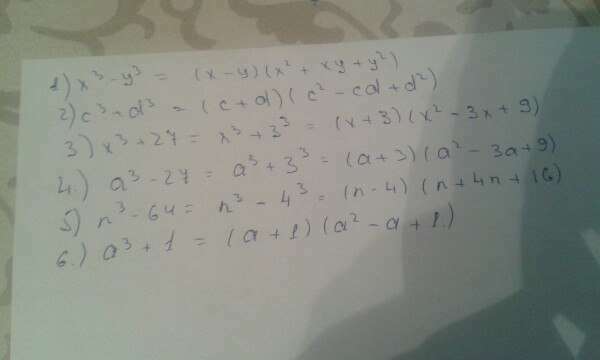 1) x³ - y³ = (x - y)(x² + xy + y²)
2) c³ + d³ = (c + d)(c² - cd + d²)
3) x³ + 27 = x³ + 3³ = (x + 3)(x² - 3x + 9)
4.) a³ - 27 = a³ + 3³ = (a + 3)(a² - 3a + 9)
5) n³ - 64 = n³ - 4³ = (n - 4)(n + 4n + 16)
6.) a³ + 1 = (a + 1)(a² - a + 1.)